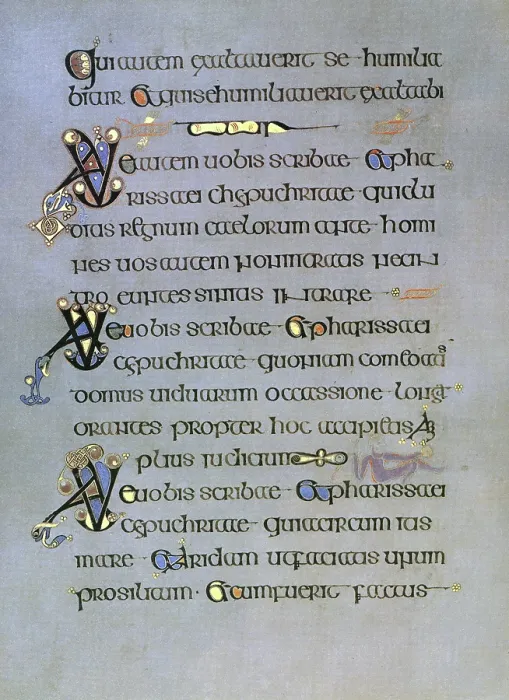 Qui autem exaltauerit se humilia
bitur Et qui se humiliauerit exaltabi
tur
Ve autem uobis scribae Et pha
rissaei chypuchritae qui clu
ditis regnum caelorum ante homi
nes uos autem non intratis nec in
tro euntes sinitis intrare
Ve uobis scribae Et pharissaei
ypuchritae quoniam comeditis
domus uiduarum occassione longa
orantes propter hoc accipietis Am
plius iudicium
Ve uobis scribae Et pharissaei
ypuchritae quia circum itis
mare Et Aridam ut faciatis unum
prosilitum · Et cum fuerit factus